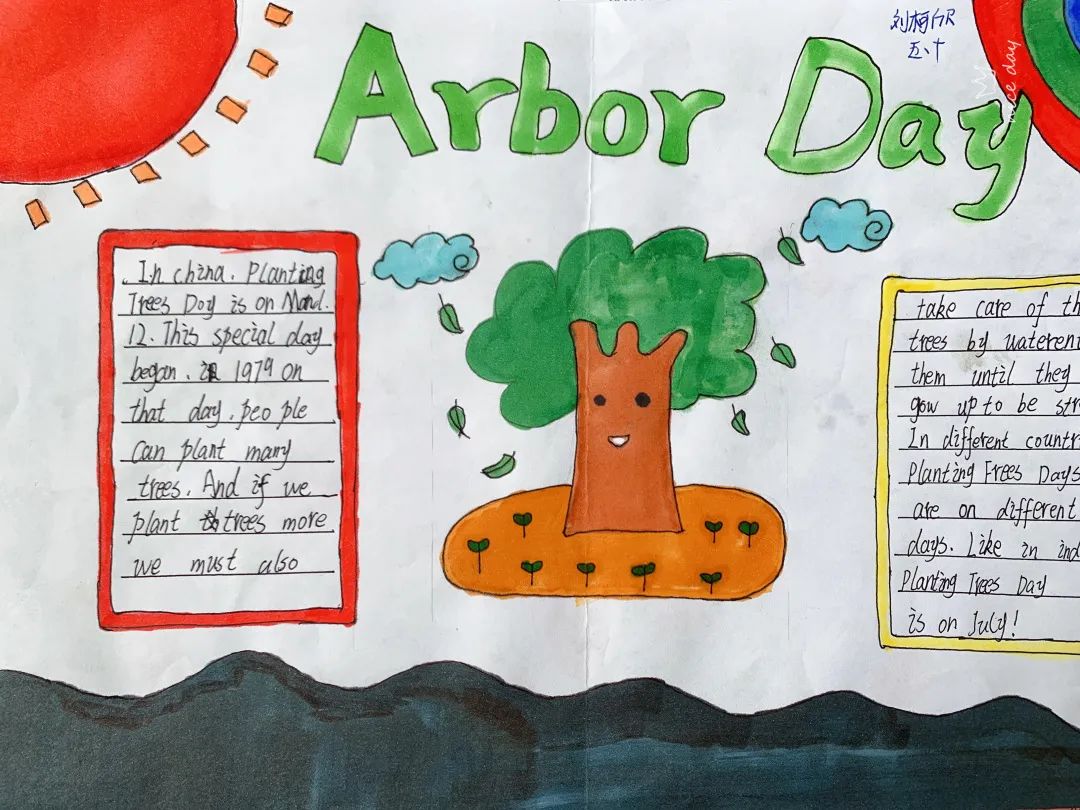 Arbor Day
五、十
nice day
In china. Planting
Trees Day is on
12. This special day
began. in 1979 on
that day. peo ple
can plant many
trees. And if we
plant trees more
we must also
take care of th
trees by waterent
them until they
gow up to be str
In different countr
Planting Trees Days
are on different
days. Like in ind
Planting Trees Day
is on July!